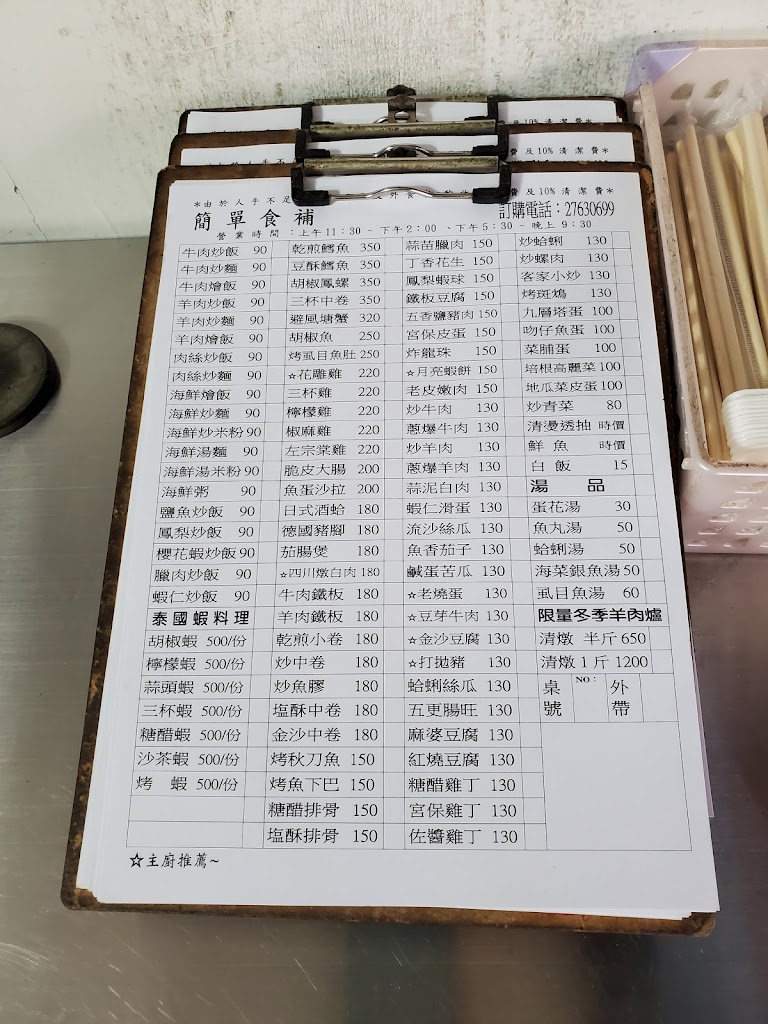 費 及 10% 清 潔 費＊
＊由 於 人 手 不 足
費 及 10% 清 潔 費＊
簡 單 食 補
訂購電話：27630699
營 業 時 間 ：上午 11：30 ~ 下午 2：00 、下午 5：30 ~ 晚上 9：30
牛肉炒飯 90 乾煎鱈魚 350 蒜苗臘肉 150 炒蛤蜊 130
牛肉炒麵 90 豆酥鱈魚 350 丁香花生 150 炒螺肉 130
牛肉燴飯 90 胡椒鳳螺 350 鳳梨蝦球 150 客家小炒 130
羊肉炒飯 90 三杯中卷 350 鐵板豆腐 150 烤斑鳩 130
羊肉炒麵 90 避風塘蟹 320 五香鹽豬肉 150 九層塔蛋 100
羊肉燴飯 90 胡椒魚 250 宮保皮蛋 150 吻仔魚蛋 100
肉絲炒飯 90 烤虱目魚肚 250 炸龍珠 150 菜脯蛋 100
肉絲炒麵 90 ☆花雕雞 220 ☆月亮蝦餅 150 培根高麗菜 100
海鮮燴飯 90 三杯雞 220 老皮嫩肉 150 地瓜菜皮蛋 100
海鮮炒麵 90 檸檬雞 220 炒牛肉 130 炒青菜 80
海鮮炒米粉 90 椒麻雞 220 蔥爆牛肉 130 清燙透抽 時價
海鮮湯麵 90 左宗棠雞 220 炒羊肉 130 鮮 魚 時價
海鮮湯米粉 90 脆皮大腸 200 蔥爆羊肉 130 白 飯 15
海鮮粥 90 魚蛋沙拉 200 蒜泥白肉 130 湯 品
鹽魚炒飯 90 日式酒蛤 180 蝦仁滑蛋 130 蛋花湯 30
鳳梨炒飯 90 德國豬腳 180 流沙絲瓜 130 魚丸湯 50
櫻花蝦炒飯 90 茄腸煲 180 魚香茄子 130 蛤蜊湯 50
臘肉炒飯 90 ☆四川燉白肉 180 鹹蛋苦瓜 130 海菜銀魚湯 50
蝦仁炒飯 90 牛肉鐵板 180 ☆老燒蛋 130 虱目魚湯 60
泰國蝦料理 羊肉鐵板 180 ☆豆芽牛肉 130 限量冬季羊肉爐
胡椒蝦 500/份 乾煎小卷 180 ☆金沙豆腐 130 清燉 半斤 650
檸檬蝦 500/份 炒中卷 180 ☆打拋豬 130 清燉 1 斤 1200
蒜頭蝦 500/份 炒魚膠 180 蛤蜊絲瓜 130 桌號 NO： 外帶
三杯蝦 500/份 塩酥中卷 180 五更腸旺 130
糖醋蝦 500/份 金沙中卷 180 麻婆豆腐 130
沙茶蝦 500/份 烤秋刀魚 150 紅燒豆腐 130
烤 蝦 500/份 烤魚下巴 150 糖醋雞丁 130
糖醋排骨 150 宮保雞丁 130
塩酥排骨 150 佐醬雞丁 130
☆主廚推薦~